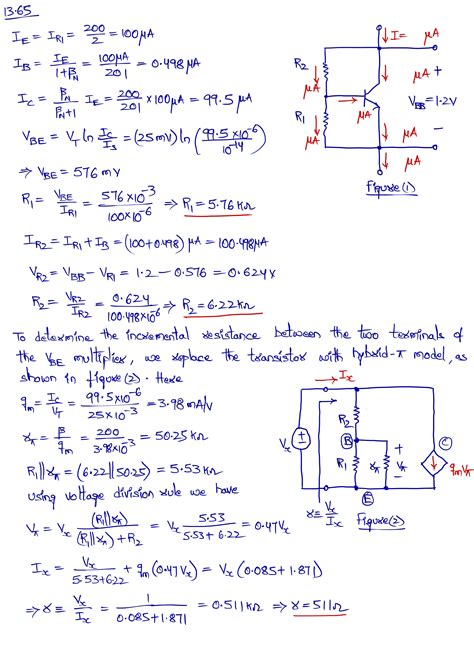 13.65
I_E = I_R1 = 200/2 = 100μA
I_B = I_E/(1+β_N) = 100μA/201 = 0.498μA
I_C = β_N/(β_N+1) I_E = 200/201 × 100μA = 99.5μA
V_BE = V_T ln I_C/I_S = (25mV) ln (99.5×10^-6/10^-14)
⇒ V_BE = 576 mV
R_1 = V_BE/I_R1 = 576×10^-3/100×10^-6 ⇒ R_1 = 5.76kΩ
I_R2 = I_R1 + I_B = (100+0.498) μA = 100.498μA
V_R2 = V_BB − V_R1 = 1.2 − 0.576 = 0.624V
R_2 = V_R2/I_R2 = 0.624/100.498×10^-6 ⇒ R_2 = 6.22kΩ
I= μA
R_2
μA
μA
μA
+
V_BB = 1.2V
−
R_1
μA
μA
μA
Figure(1)
To determine the incremental resistance between the two terminals of
the V_BE multiplier, we replace the transistor with hybrid-π model, as
shown in figure(2). Here
g_m = I_C/V_T = 99.5×10^-6/25×10^-3 = 3.98 mA/V
r_π = β/g_m = 200/3.98×10^-3 = 50.25 kΩ
R_1||r_π = (6.22||50.25) = 5.53 kΩ
using voltage division rule we have
V_π = V_x (R_1||r_π)/((R_1||r_π)+R_2) = V_x 5.53/(5.53+6.22) = 0.47V_x
I_x = V_x/(5.53+6.22) + g_m(0.47V_x) = V_x(0.085+1.871)
⇒ r ≡ V_x/I_x = 1/(0.085+1.871) = 0.511kΩ ⇒ r = 511Ω
I_x
R_2
V_x
±
B
C
R_1
r_π
+
V_π
−
g_mV_π
E
r ≡ V_x/I_x
Figure(2)